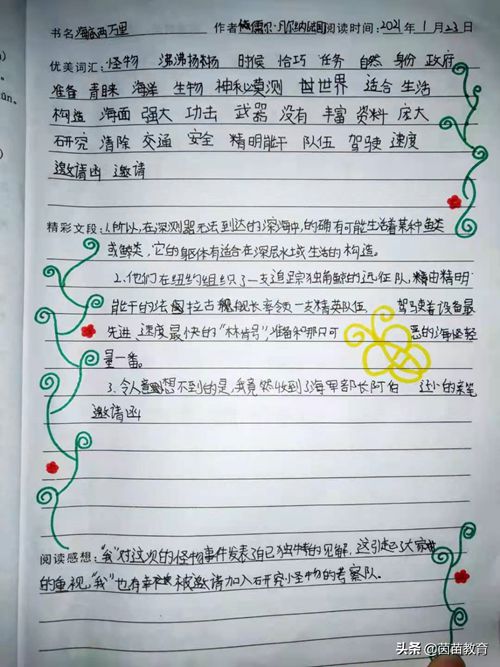 书名 海底两万里 作者 儒尔·凡尔纳法国 阅读时间：2021年1月23日
优美词汇：怪物 沸沸扬扬 时候 恰巧 任务 自然 身份 政府
准备 青睐 海洋 生物 神秘莫测 世界 适合 生活
构造 海面 强大 功击 武器 没有 丰富 资料 庞大
研究 清除 交通 安全 精明能干 队伍 驾驶 速度
邀请函 邀请
精彩文段：1.所以，在深测器无法到达的深海中，的确有可能生活着某种鱼类
或鲸类，它的躯体有适合在深层水域生活的构造。
2.他们在纽约组织了一支追踪独角鲸的远征队，精由精明
能干的法拉古舰长率领一支精英队伍 驾驶着设备最
先进，速度最快的“林肯号”，准备和那只可 恶的海怪较
量一番。
3.令人意想不到的是，我竟然收到了海军部长阿伯 的亲笔
邀请函
阅读感想：“我”对这次的怪物事件发表了自己独特的见解，这引起了大家
的重视，“我”也有幸被邀请加入研究小怪物的考察队。
头条 @茵苗教育